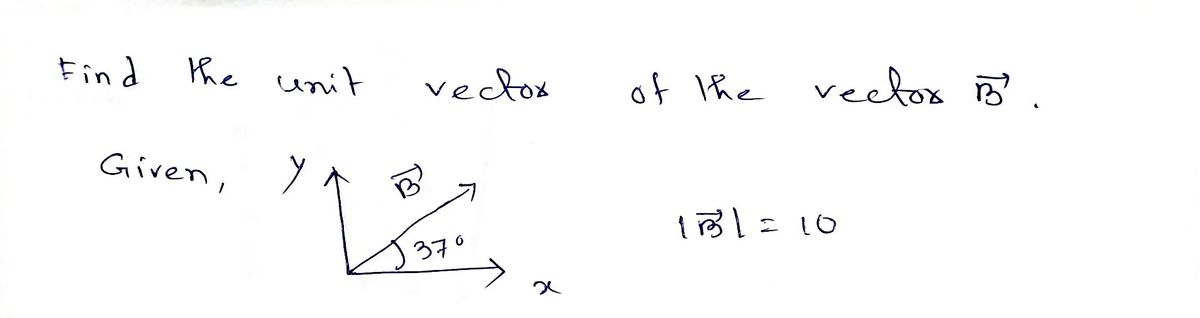 Find the unit vector of the vector B⃗ .
Given, y B⃗
37° |B⃗| = 10
x